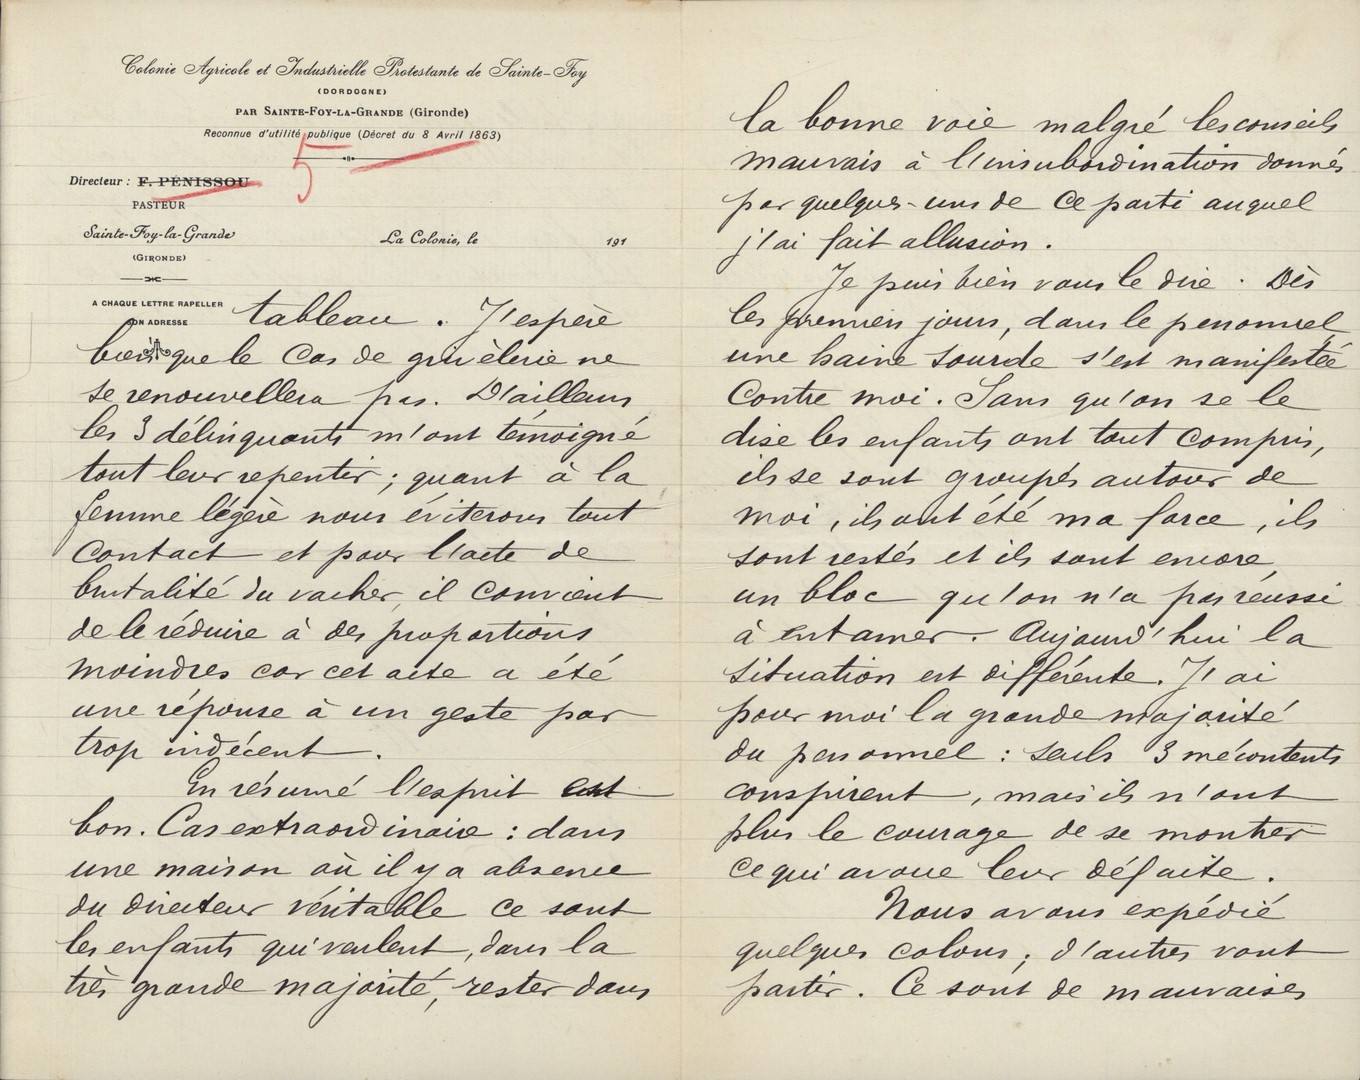 Colonie Agricole et Industrielle Protestante de Sainte-Foy
(DORDOGNE)
PAR SAINTE-FOY-LA-GRANDE (Gironde)
Reconnue d'utilité publique (Décret du 8 Avril 1863)
5
Directeur : F. PÉNISSOU
PASTEUR
Sainte-Foy-la-Grande
(GIRONDE)
La Colonie, le 191
A CHAQUE LETTRE RAPELLER
SON ADRESSE
tableau. J'espère
bien que le cas de grivèlerie ne
se renouvellera pas. D'ailleurs
les 3 délinquants m'ont témoigné
tout leur repentir ; quant à la
femme légère nous éviterons tout
contact et pour l'acte de
brutalité du vacher, il convient
de le réduire à des proportions
moindres car cet acte a été
une réponse à un geste par
trop indécent.
En résumé l'esprit est
bon. Cas extraordinaire : dans
une maison où il y a absence
du directeur véritable ce sont
les enfants qui veulent, dans la
très grande majorité, rester dans
la bonne voie malgré les conseils
mauvais à l'insubordination donnés
par quelques-uns de ce parti auquel
j'ai fait allusion.
Je puis bien vous le dire. Dès
les premiers jours, dans le personnel
une haine sourde s'est manifestée
contre moi. Sans qu'on se le
dise les enfants ont tout compris,
ils se sont groupés autour de
moi, ils ont été ma force, ils
sont restés et ils sont encore
un bloc qu'on n'a pas réussi
à entamer. Aujourd'hui la
situation est différente. J'ai
pour moi la grande majorité
du personnel : seuls 3 mécontents
conspirent, mais ils n'ont
plus le courage de se montrer
ce qui avoue leur défaite.
Nous avons expédié
quelques colons ; d'autres vont
partir. Ce sont de mauvaises